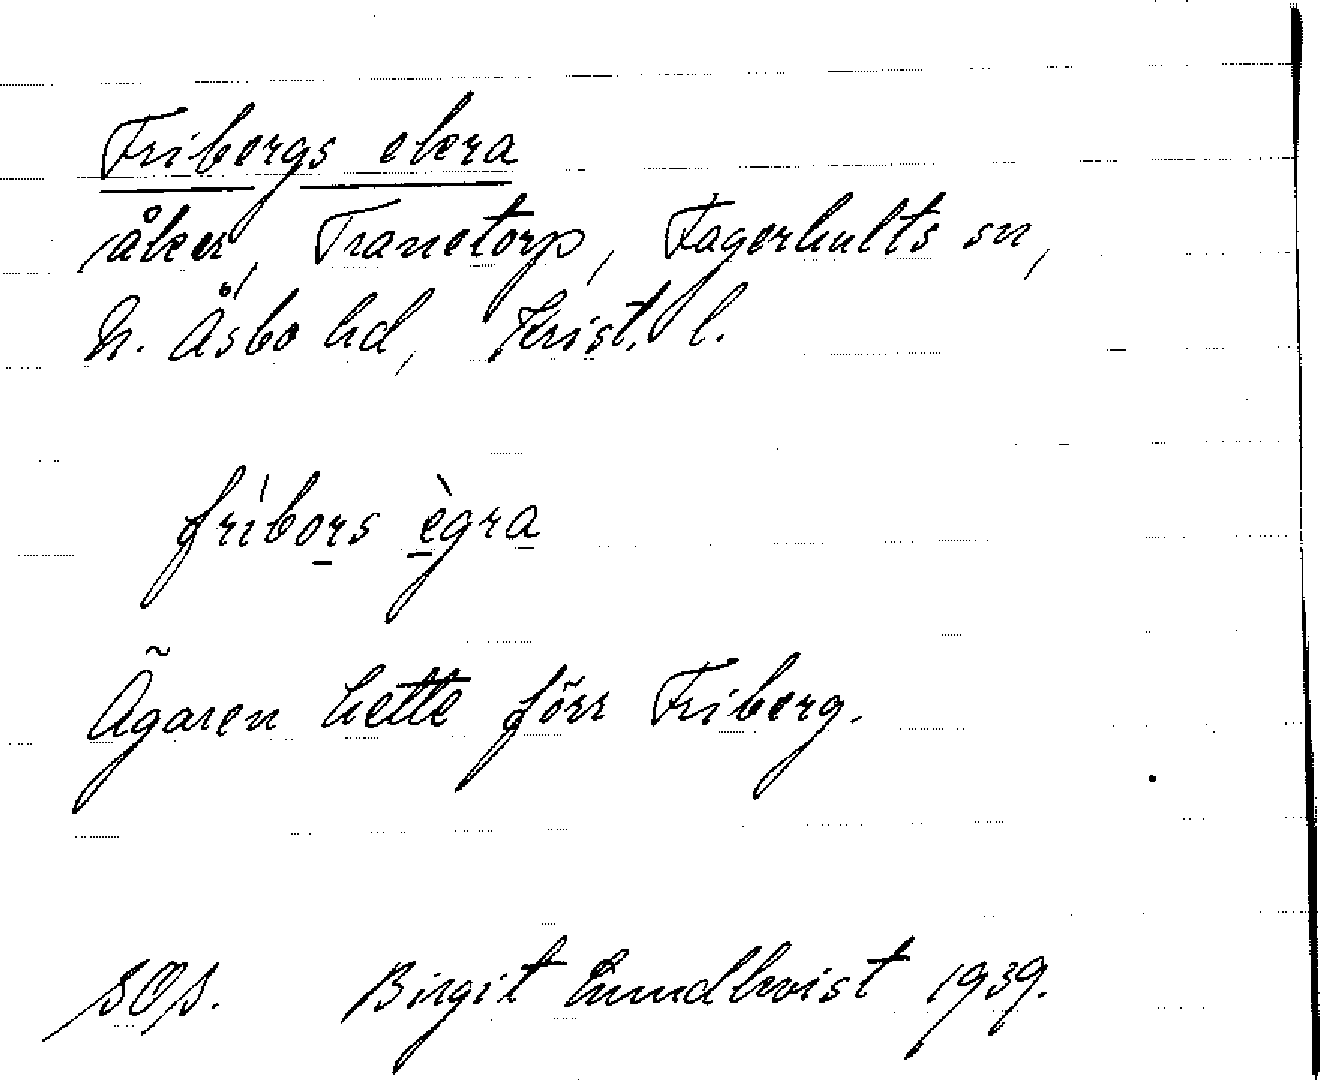 Fribergs ekra
åker, Tranetorp, Fagerhults sn,
N. Åsbo hd, Krist. l.
frìbors ègra
Ägaren hette förr Friberg.
SOS. Birgit Lundkvist 1939.